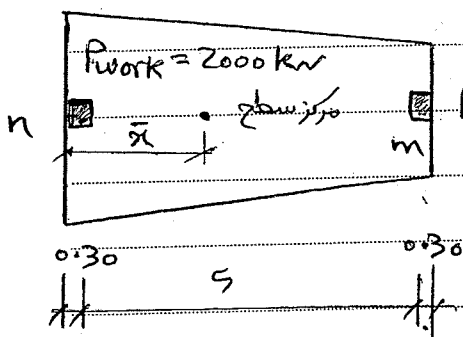 Pwork = 2000 kN
مرکز سطح
n
x̄
m
0.30
5
0.30